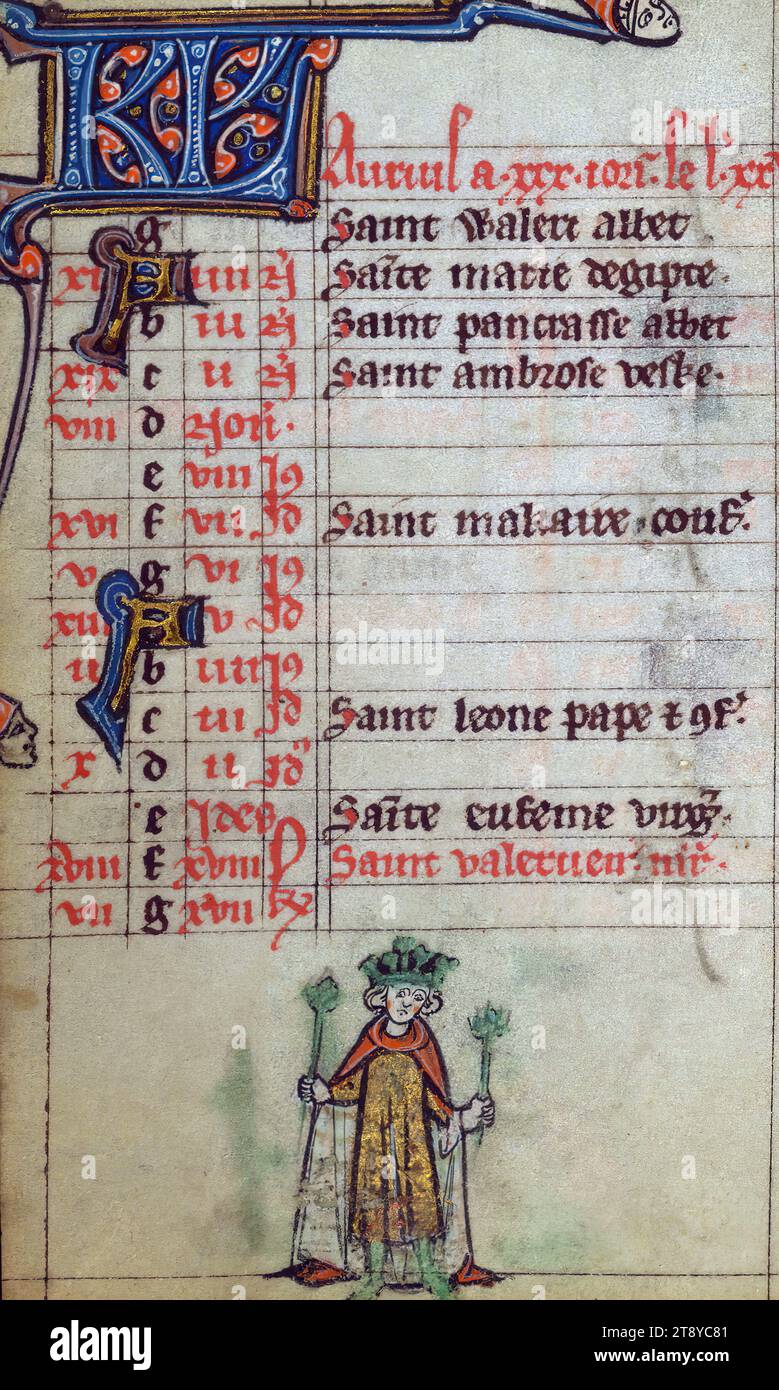 KL Auruil a .xxx. iors. le l. xx
g Saint Waleri abbet
xi A iiii N Sainte marie degipte.
b iii N Saint pancrasse abbet
xix c ii N Saint ambrose veske.
viii d Non.
e viii Id
xvi f vii Id Saint makaire conf.
v g vi Id
xiii A v Id
ii b iiii Id
c iii Id Saint leone pape & 9f.
x d ii Id
e Ides Sainte eufeme virg.
xviii f xviii kl Saint valerien mr.
vii g xvii kl
alamy
Image ID: 2T8YC81
www.alamy.com